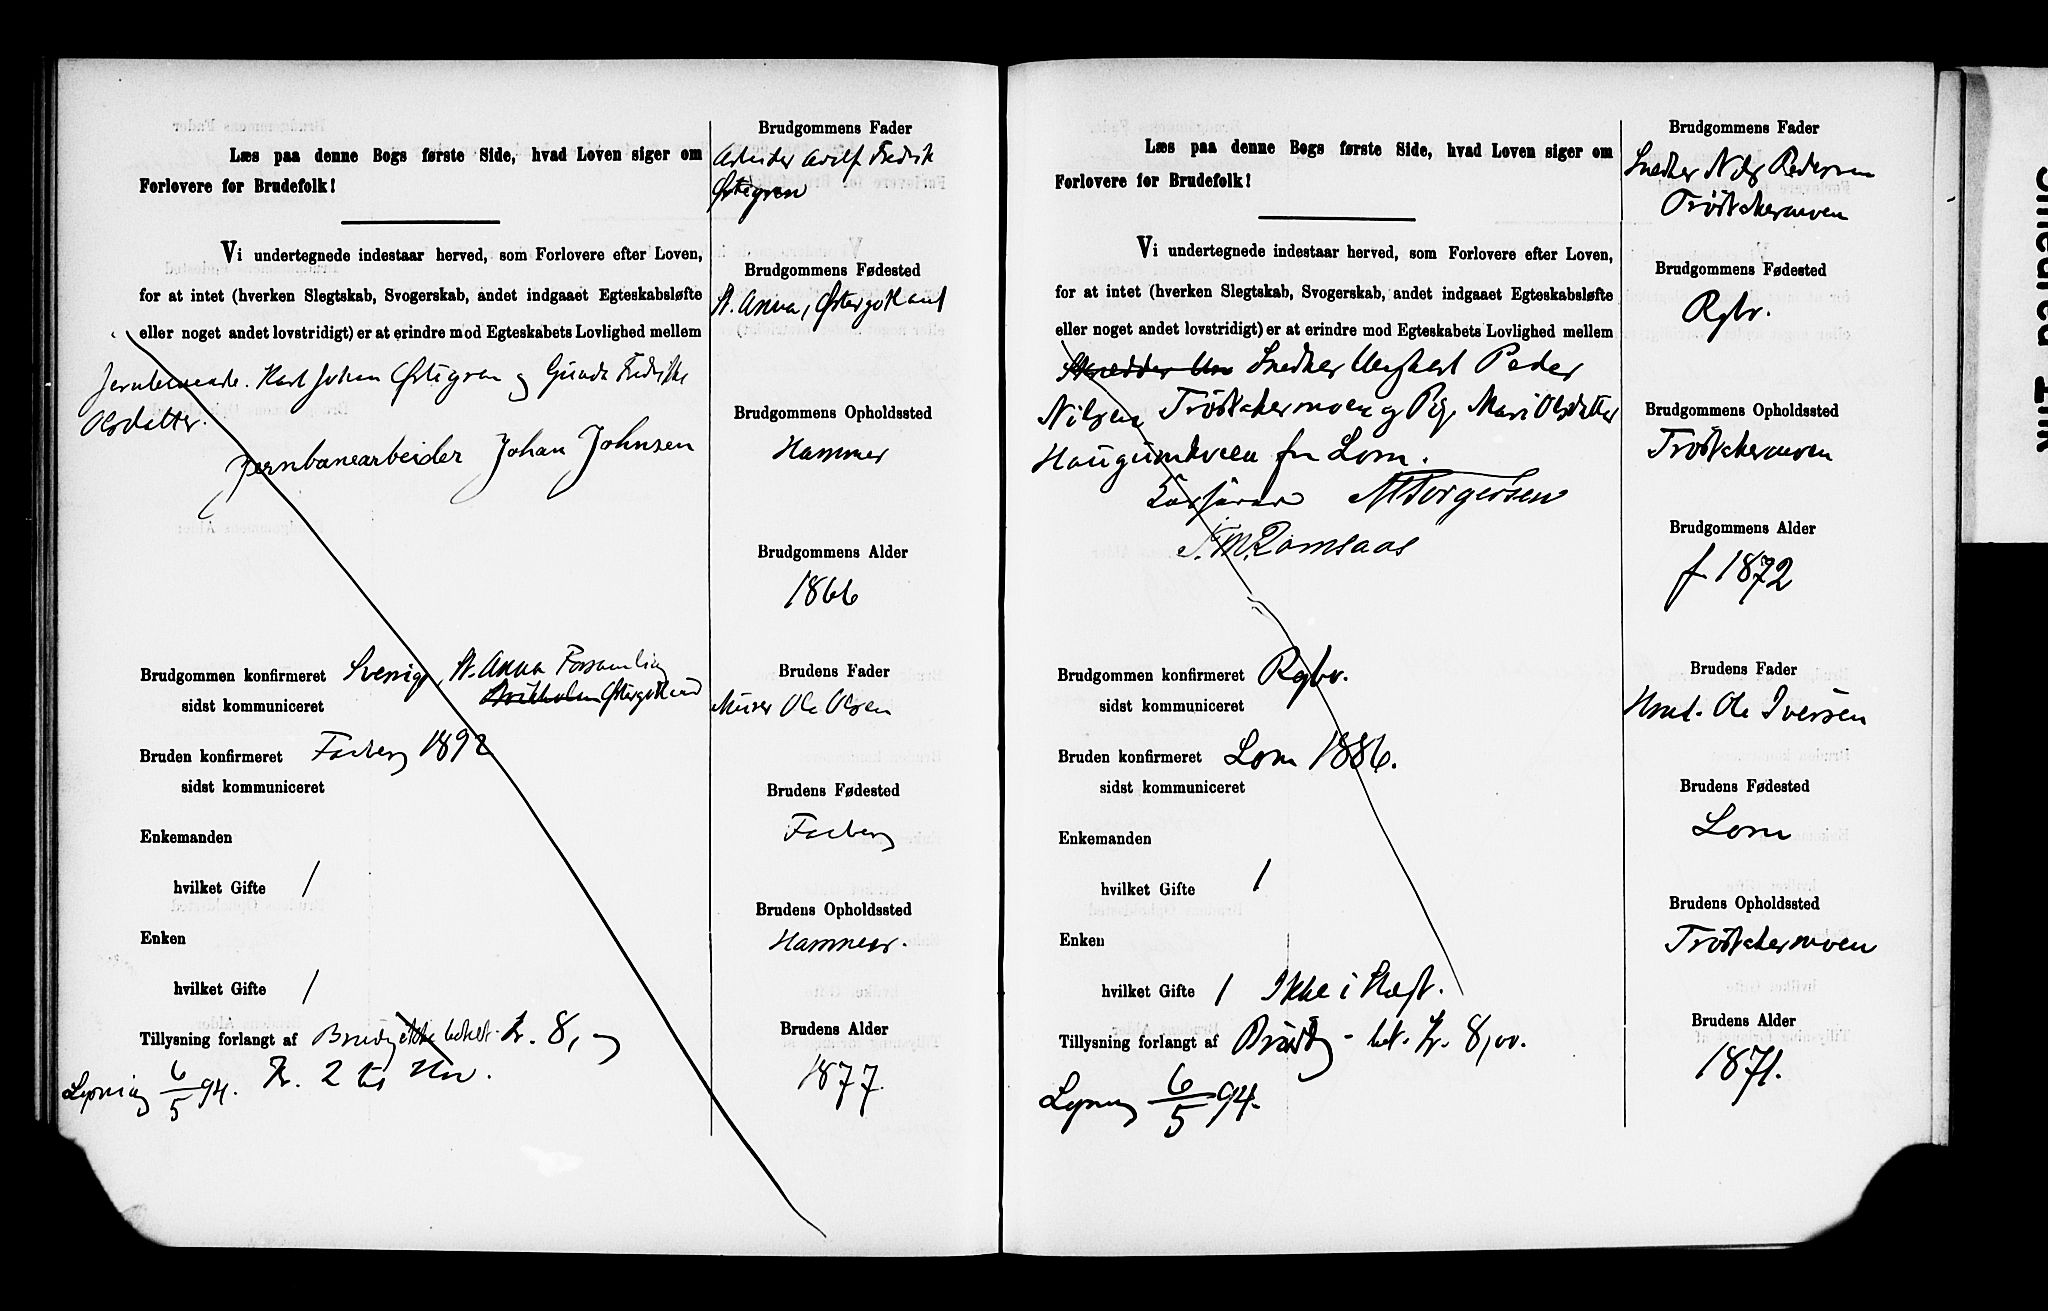 Læs paa denne Bogs første Side, hvad Loven siger om
Forlovere for Brudefolk!
Vi undertegnede indestaar herved, som Forlovere efter Loven,
for at intet (hverken Slegtskab, Svogerskab, andet indgaaet Egteskabsløfte
eller noget andet lovstridigt) er at erindre mod Egteskabets Lovlighed mellem
Karl Johan Østigren og Gunda Fredrikke
Olsdatter.
Jernbanearbeider Johan Johnsen
Brudgommen konfirmeret Sverige, St. Anna Forsamling
sidst kommuniceret Østergotland
Bruden konfirmeret Faaberg 1892
sidst kommuniceret
Enkemanden
hvilket Gifte 1
Enken
hvilket Gifte 1
Tillysning forlangt af Brudg ikke betalt Kr. 8, og
Kr. 2 til
Lysning 6/5 94.
Brudgommens Fader
Arbeider Adolf Fredrik
Østigren
Brudgommens Fødested
St. Anna, Østergotland
Brudgommens Opholdssted
Hammer
Brudgommens Alder
1866
Brudens Fader
Murer Ole Olsen
Brudens Fødested
Faaberg
Brudens Opholdssted
Hammer.
Brudens Alder
1877.
Læs paa denne Bogs første Side, hvad Loven siger om
Forlovere for Brudefolk!
Vi undertegnede indestaar herved, som Forlovere efter Loven,
for at intet (hverken Slegtskab, Svogerskab, andet indgaaet Egteskabsløfte
eller noget andet lovstridigt) er at erindre mod Egteskabets Lovlighed mellem
Snedker Ungkarl Peder
Nilsen Trøstakermoen og Pige Mari Olsdatter
fra Lom.
M Torgersen
Brudgommen konfirmeret Rgbr.
sidst kommuniceret
Bruden konfirmeret Lom 1886.
sidst kommuniceret
Enkemanden
hvilket Gifte 1
Enken
hvilket Gifte 1 Ikke i Slægt.
Tillysning forlangt af Brudg - bet. Kr. 8,00.
Lysning 6/5 94.
Brudgommens Fader
Snedker Nils Pedersen
Trøstakermoen
Brudgommens Fødested
Rgbr.
Brudgommens Opholdssted
Trøstakermoen
Brudgommens Alder
f. 1872
Brudens Fader
Hmd. Ole Iversen
Brudens Fødested
Lom
Brudens Opholdssted
Trøstakermoen
Brudens Alder
1871.